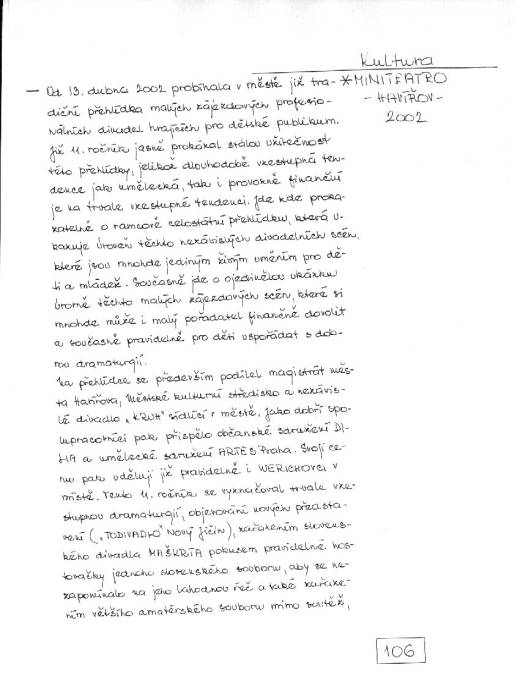 Kultura
— Od 13. dubna 2002 probíhala v městě již tra-
*MINITEATRO
- HAVÍŘOV -
2002
diční přehlídka malých zájezdových profesio-
nálních divadel hrajících pro dětské publikum.
Již 11. ročník jasně prokázal stálou užitečnost
této přehlídky, jelikož dlouhodobě vzestupná ten-
dence jak umělecká, tak i provozně finanční
je na trvale vzestupné tendenci. Jde zde proka-
zatelně o rámcově celostátní přehlídku, která u-
kazuje úroveň těchto nezávislých divadelních scén,
které jsou mnohde jediným živým uměním pro dě-
ti a mládež. Současně jde o ojedinělou ukázku
úrovně těchto malých zájezdových scén, které si
mnohde může i malý pořadatel finančně dovolit
a současně pravidelně pro děti uspořádat s dob-
rou dramaturgií.
Na přehlídce se především podílel magistrát měs-
ta Havířova, Městské kulturní středisko a nezávis-
lé divadlo „KRUH" sídlící v městě. Jako dobří spo-
lupracovníci pak přispělo občanské sdružení DI-
HA a umělecké sdružení ARTES Praha. Svoji ce-
nu pak udělují již pravidelně i WERICHOVCI v
místě. Tento 11. ročník se vyznačoval trvale vze-
stupnou dramaturgií, objevování nových předsta-
vení („TODIVADLO" Nový Jičín), zařazením slovens-
kého divadla MAŠKRTA pokusem pravidelné hos-
tovačky jednoho slovenského souboru, aby se ne-
zapomínalo na jeho lahodnou řeč a také zařaze-
ním většího amatérského souboru mimo soutěž,
106